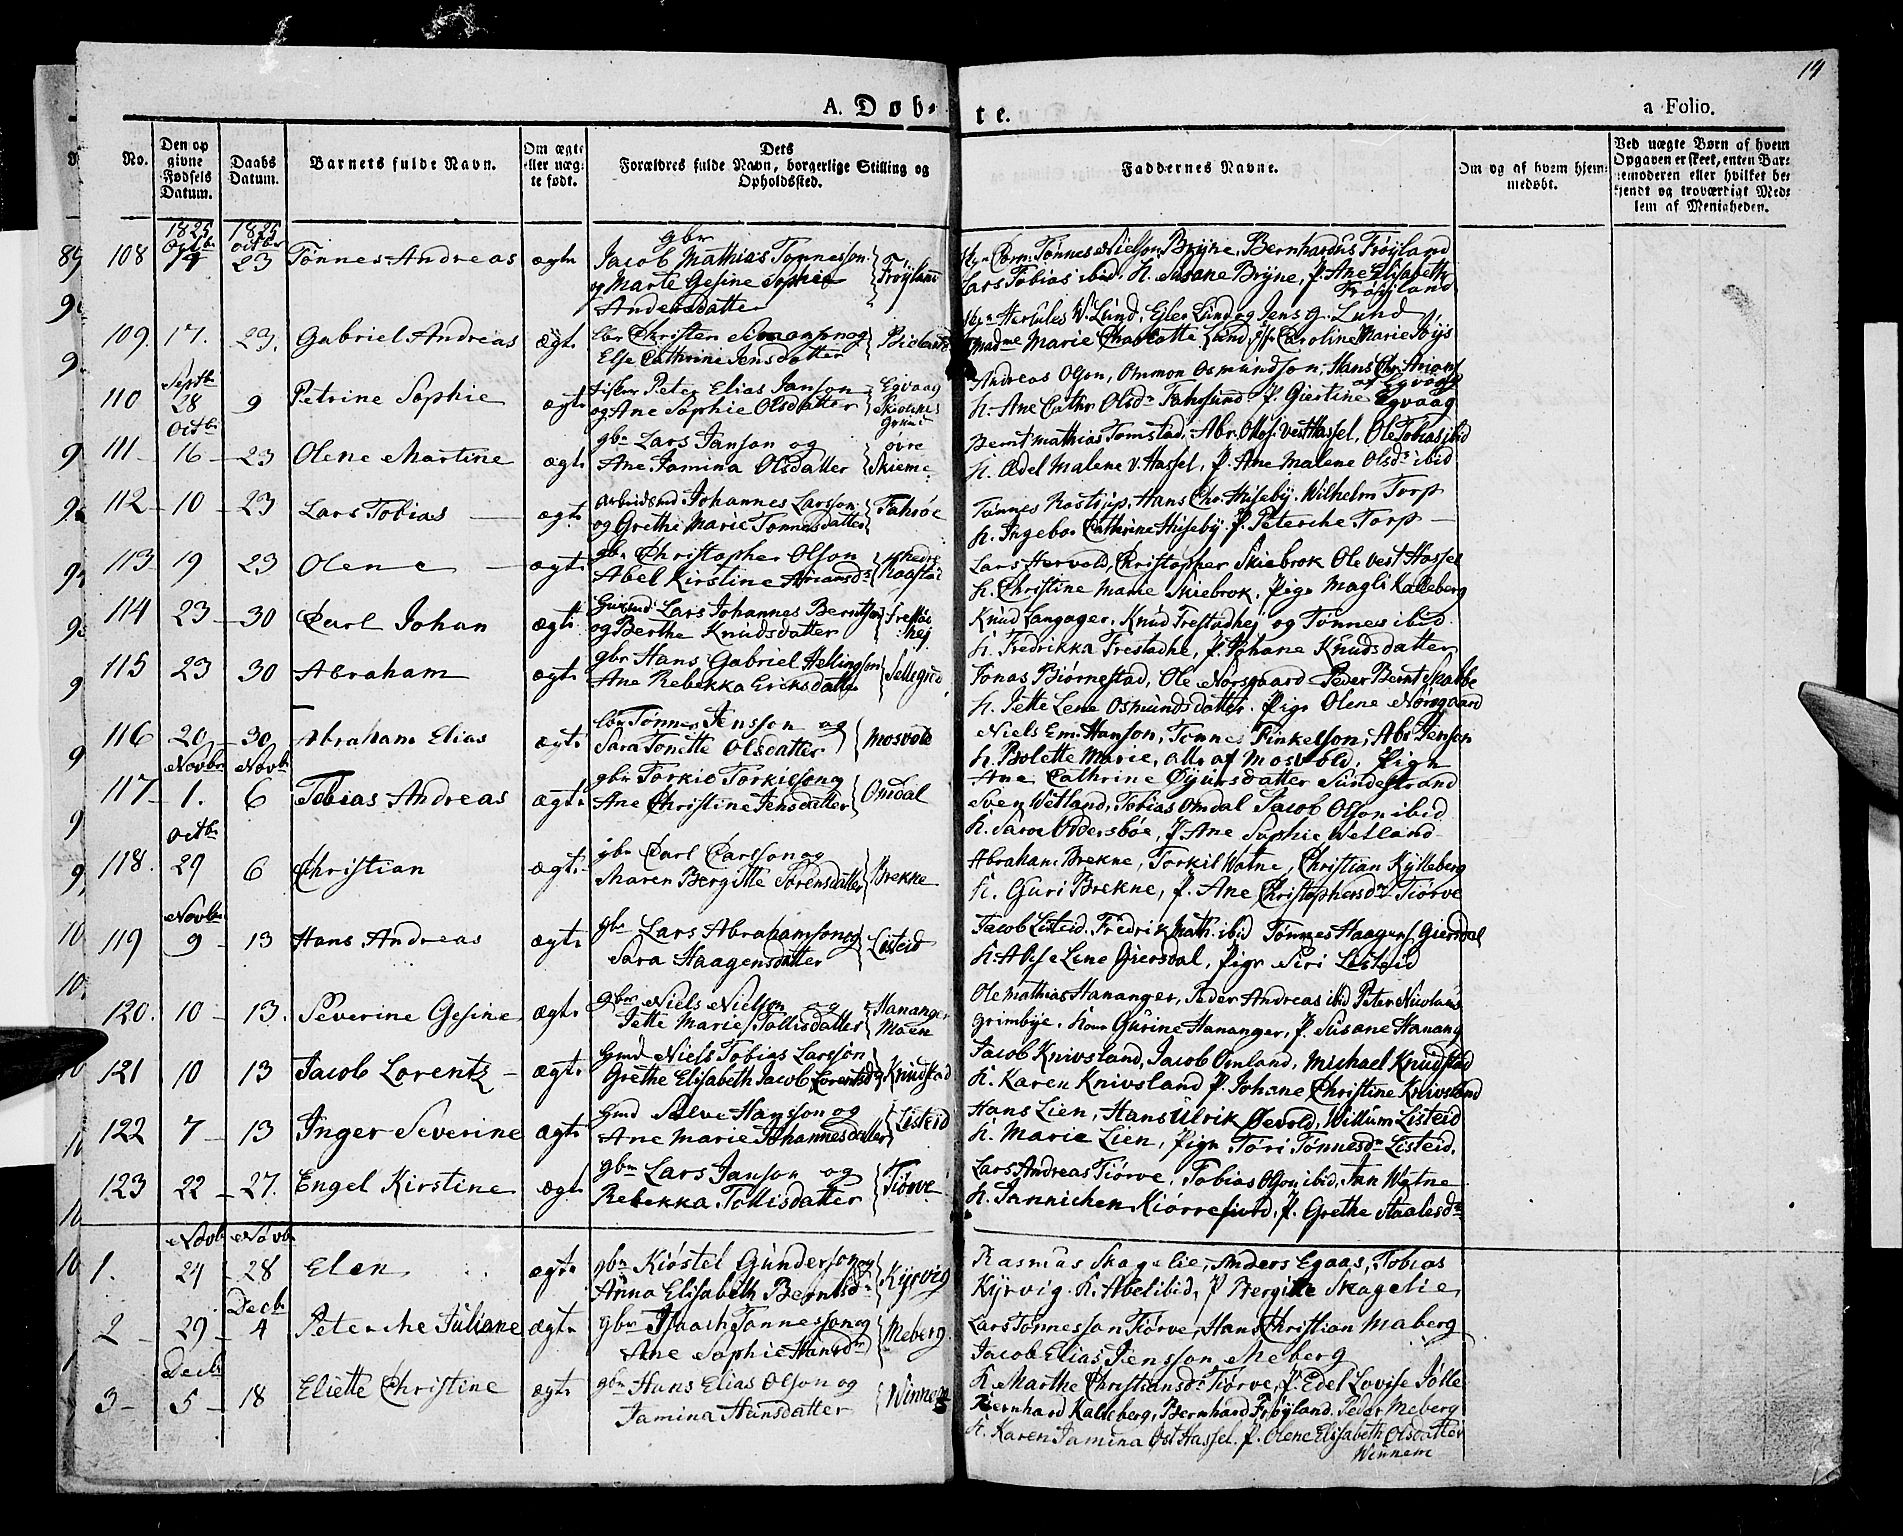 14
A. Døb-te.
a Folio.
No.
Den opgivne Fødsels Datum.
Daabs Datum.
Barnets fulde Navn.
Om ægte eller uægte født.
Dets Forældres fulde Navn, borgerlige Stilling og Opholdssted.
Faddernes Navne.
Om og af hvem hjemmedøbt.
Ved uægte Børn af hvem Opgaven er skeet, enten Barnemoderen eller hvilket bekjendt og troværdigt Medlem af Menigheden.
1825 1825
Octbr Octbr
108 23 Tønnes Andreas ægte gbr Jacob Mathias Tønnesson og Marte Gesine Sophie Andersdatter Frøyland
Tønnes Nielson Brÿne, Bernhardus Frøÿland
Lars Tobias ibid, K. Susane Brÿne, P. Ane Elisabeth Frøÿland
109 17. 23. Gabriel Andreas ægte Christen og Else Cathrine Jensdatter
Hercules W. Lund, Eiler Lund og Jens G. Lund
Madme Marie Charlotte Lund, Caroline Marie
Septbr
110 28 9 Petrine Sophie ægte Peter Elias Janson og Ane Sophie Olsdatter Egvaag
Andreas Olson, Ommon Osmundson, Hans Chr. af Egvaag
K. Ane Cathr. Olsdr Farsund, P. Giertine Egvaag
Octbr
111 16 23 Olene Martine ægte gbr Lars Janson og Ane Jamina Olsdatter øvre Skieme
Bernt Mathias Tomstad, Abr. Olss. Vest Hassel, Ole Tobias ibid
K. Ædel Malene V. Hassel, P. Ane Malene Olsdr ibid
112 10 23 Lars Tobias ægte Johannes Larsson og Grethe Marie Tønnesdatter Farøe
Tønnes Hans Chr. Huseby, Wilhelm Torp
K. Ingebor Cathrine Huseby, P. Peterche Torp
113 19 23 Olene ægte gbr Christopher Olson Abel Kirstine
Lars Hervold, Christopher Skiebrok Ole Vest Hassel
K. Christine Marie Skiebrok, Pige Magli Kalleberg
114 23 30 Carl Johan ægte Lars Johannes Berntson og Berthe Knudsdatter
Knud Langager, Knud Frestadhej og Tønnes ibid
K. Fredrikka Frestadhe, P. Johane Knudsdatter
115 23 30 Abraham ægte gbr Hans Gabriel Hellingson Ane Rebekka Eriksdatter
Jonas Biørnestad, Ole Norsgaard Peder Bernt
K. Jette Lene Osmundsdatter. Pige Olene Nørsgaard
116 20 30 Abraham Elias ægte Tønnes Jensson og Sara Tonette Olsdatter Mosvold
Niels Em. Hanson, Tønnes Finkelson, Abr. Jenson
K. Bolette Marie, alle af Mosvold, Pige
Ane Cathrine Sundestrand
Novbr Novbr
117 1. 6 Tobias Andreas ægte gbr Torkil Torkilson og Ane Christine Jensdatter Omdal
Sven Wetland, Tobias Omdal Jacob Olson ibid
K. Sara Oddersbøe, P. Ane Sophie Wetland
Octbr
118. 29 6 Christian ægte gbr Carl Carlson og Maren Bergitte Sørensdatter Brekke
Abraham Brekne, Torkil Watne, Christian Kylleberg
K. Guri Brekne, P. Ane Christophersdr Tiørve
Novbr
119 9 13 Hans Andreas ægte gbr Lars Abrahamson og Sara Haagensdatter Listeid
Jacob Listeid, Fredrik Math. ibid Tønnes Haagens. Giersdal
K. Lene Giersdal, Pige Siri Listeid
120. 10 13. Severine Gesine ægte gbr Niels Nielson og Jette Marie Tollisdatter Hananger Moen
Ole Mathias Hananger, Peder Andreas ibid Peter Nicolaus
Grimbye, Kone Gurine Hananger, P. Susane Hanang
121 10 13 Jacob Lorentz ægte Gmd Niels Tobias Larsson Grethe Elisabeth Jacob Lorentsdr Knudstad
Jacob Knivsland, Jacob Omland, Michael Knudstad
K. Karen Knivsland P. Johane Christine Knivsland
122 7 13 Inger Severine ægte Gmd Salve Hansson og Ane Marie Johannesdatter Listeid
Hans Lien, Hans Ulrik Øevold, Willum Listeid
K. Marie Lien, Pige Tøri Tønnesdr Listeid.
123 22 27. Engel Kirstine ægte gbr Lars Janson og Rebekka Tollisdatter Tiørve
Lars Andreas Tiørve, Tobias Olson ibid, Jan Watne
K. Jannichen Kiørrefiord, P. Grethe Staalesdr
Novbr Novbr
1. 24 28 Elen ægte gbr Kiøstel Gunderson og Anna Elisabeth Berntsdr Kÿrvig
Rasmus Skagelie, Anders Egaas, Tobias
Kÿrvig K. Abel ibid, P. Bergitte Skagelie
Decbr
2 29 4 Peterche Juliane ægte gbr Isaach Tønnesson og Ane Sophie Hansdr Meberg
Lars Tønnesson Tiørve, Hans Christian Maberg
Jacob Elias Jensson Meberg
K. Marthe Christiansdr Tiørve, P. Edel Lovise
Decbr
3 5 18 Eliette Christine ægte gbr Hans Elias Olson og Jamina Hansdatter Winnem
Bernhard Kalleberg, Bernhard Frøyland, Peder Meberg
K. Karen Jamina Øst Hassel. P. Olene Elisabeth Olsdatter
Winnem